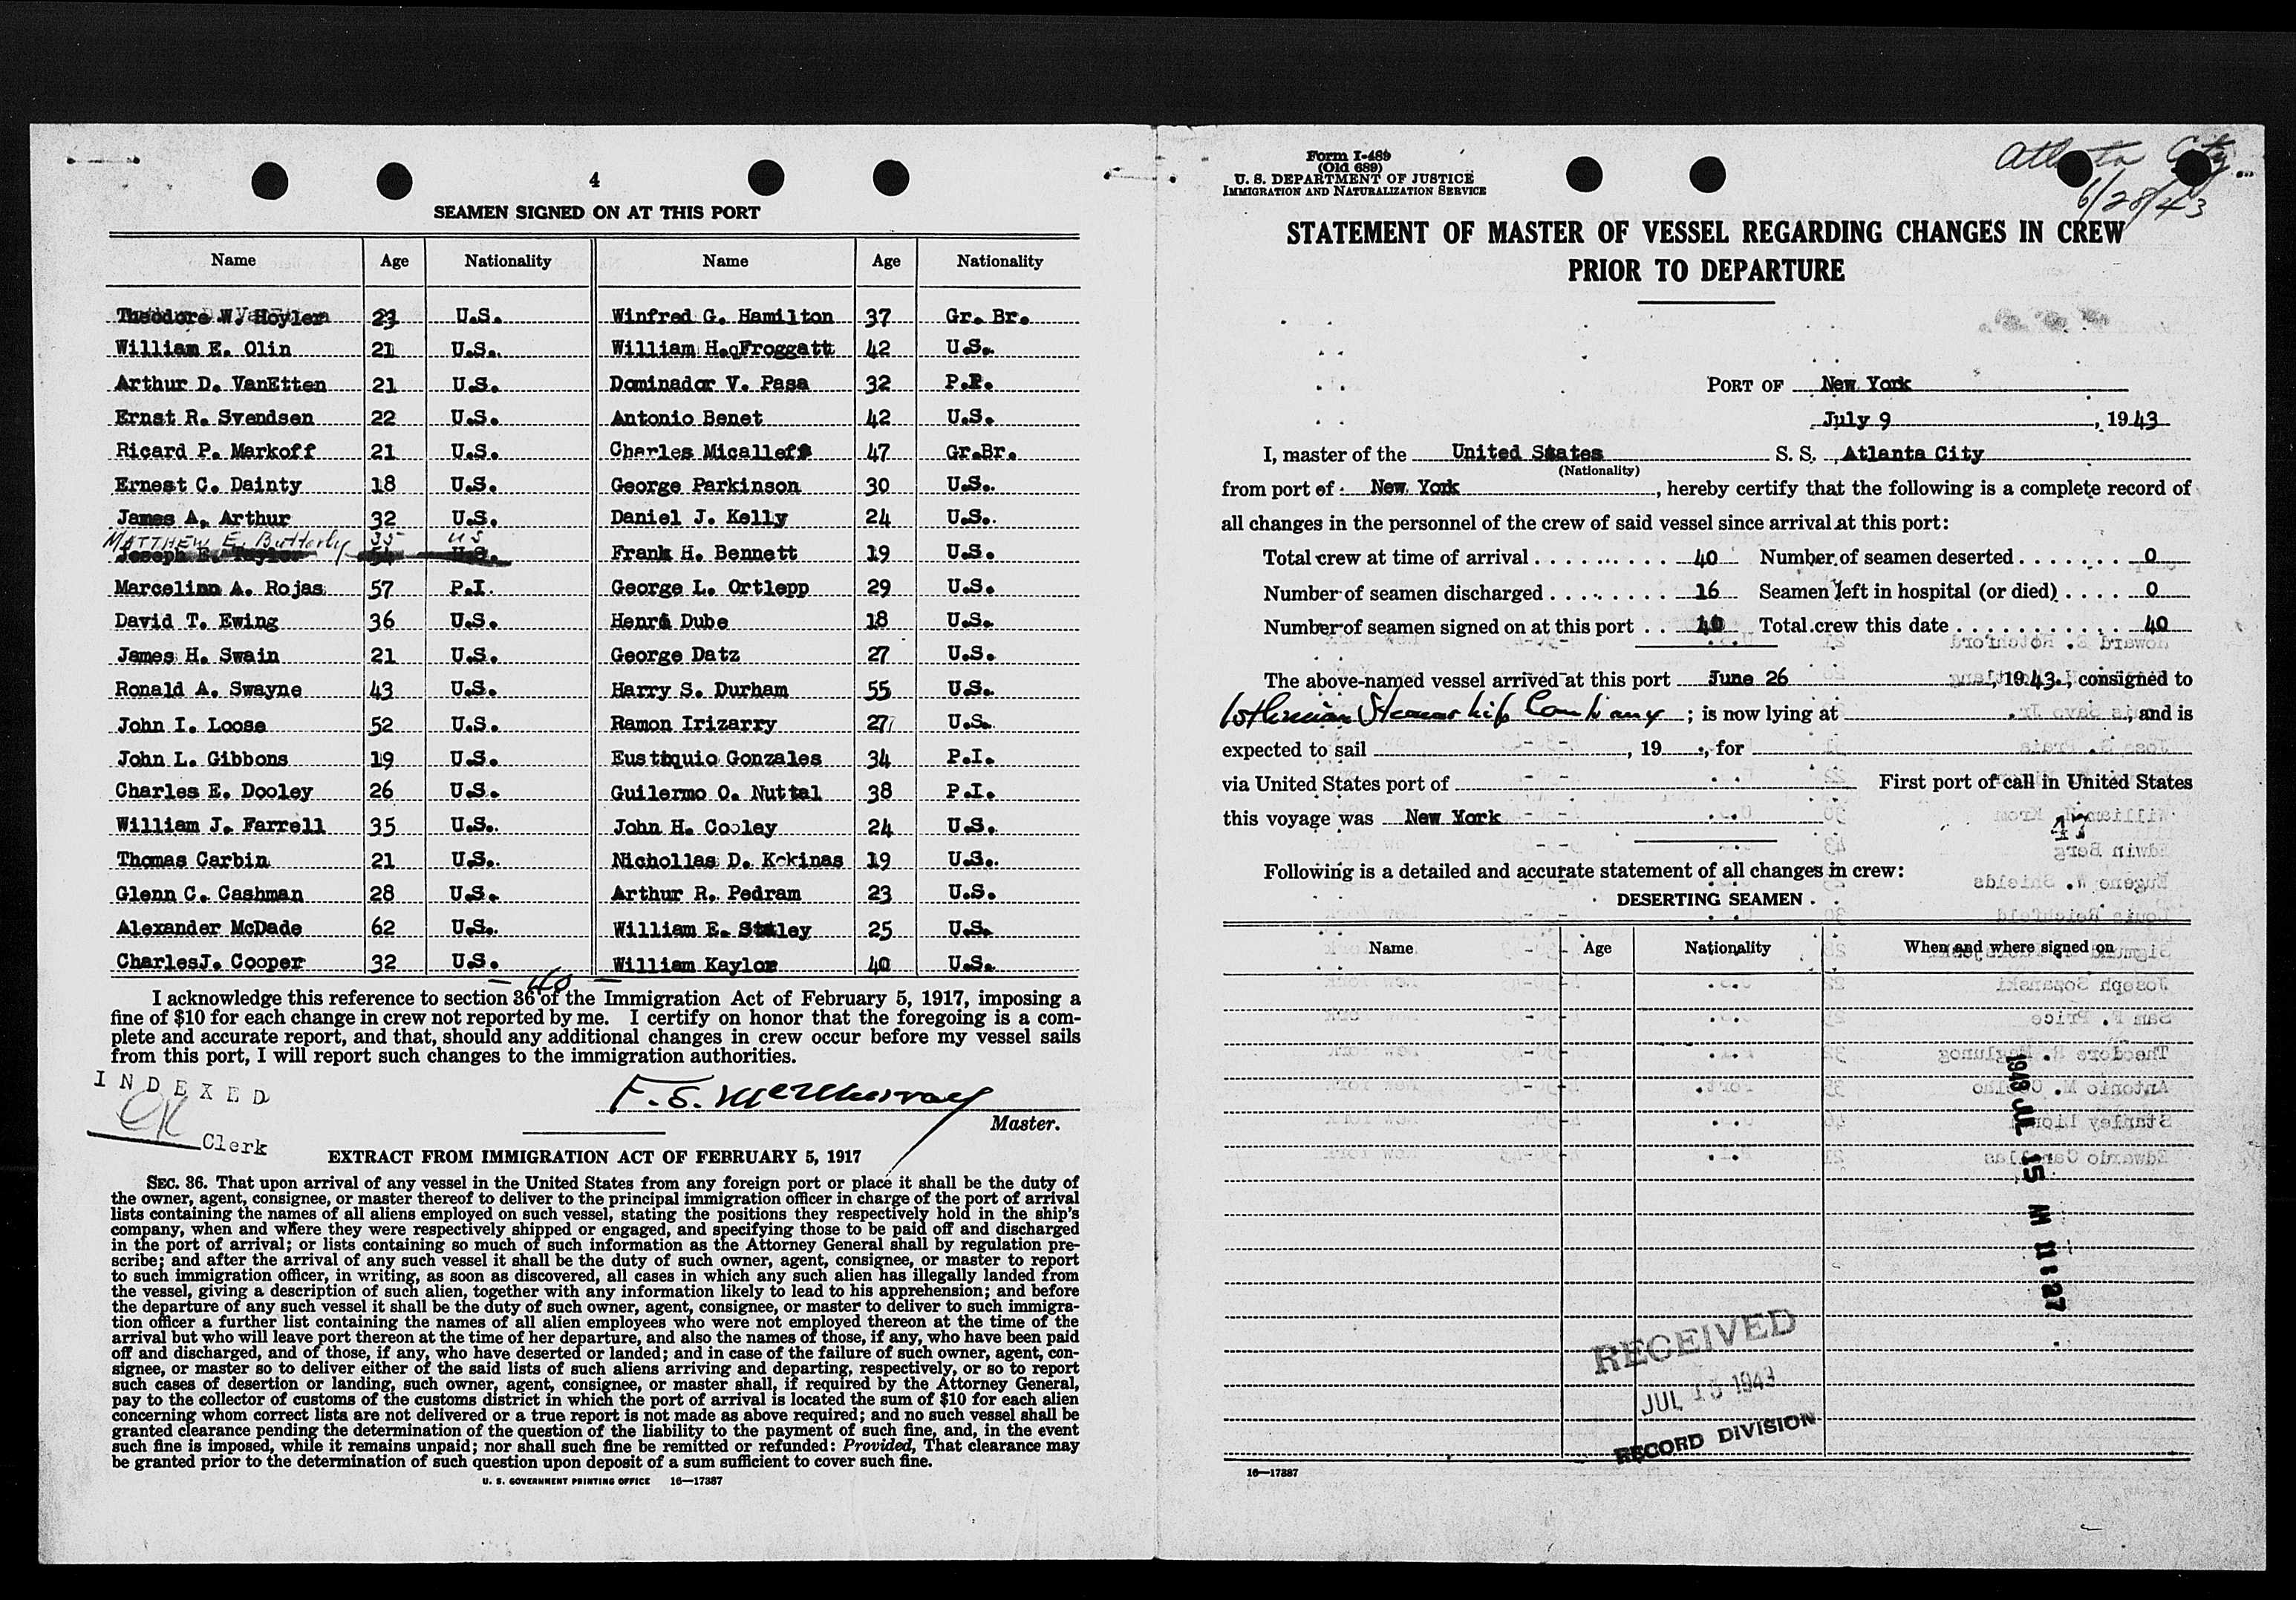 4
SEAMEN SIGNED ON AT THIS PORT
Name Age Nationality Name Age Nationality
Theodore W. Hoyler 23 U.S. Winfred G. Hamilton 37 Gr. Br.
William E. Olin 21 U.S. William H. Froggatt 42 U.S.
Arthur D. VanEtten 21 U.S. Dominador V. Pasa 32 P.I.
Ernst R. Svendsen 22 U.S. Antonio Benet 42 U.S.
Ricard P. Markoff 21 U.S. Charles Micalleff 47 Gr.Br.
Ernest C. Dainty 18 U.S. George Parkinson 30 U.S.
James A. Arthur 32 U.S. Daniel J. Kelly 24 U.S.
MATTHEW E. Butterly 35 US
Joseph E. Taylor 54 U.S. Frank H. Bennett 19 U.S.
Marcelinn A. Rojas 57 P.I. George L. Ortlepp 29 U.S.
David T. Ewing 36 U.S. Henri Dube 18 U.S.
James H. Swain 21 U.S. George Datz 27 U.S.
Ronald A. Swayne 43 U.S. Harry S. Durham 55 U.S.
John I. Loose 52 U.S. Ramon Irizarry 27 U.S.
John L. Gibbons 19 U.S. Eustiquio Gonzales 34 P.I.
Charles E. Dooley 26 U.S. Guilermo O. Nuttal 38 P.I.
William J. Farrell 35 U.S. John H. Cooley 24 U.S.
Thomas Carbin 21 U.S. Nichollas D. Kokinas 19 U.S.
Glenn C. Cashman 28 U.S. Arthur R. Pedram 23 U.S.
Alexander McDade 62 U.S. William E. Staley 25 U.S.
CharlesJ. Cooper 32 U.S. William Kaylor 40 U.S.
— 40 —
I acknowledge this reference to section 36 of the Immigration Act of February 5, 1917, imposing a
fine of $10 for each change in crew not reported by me. I certify on honor that the foregoing is a com-
plete and accurate report, and that, should any additional changes in crew occur before my vessel sails
from this port, I will report such changes to the immigration authorities.
INDEXED
Clerk
F. S. McMurray
Master.
EXTRACT FROM IMMIGRATION ACT OF FEBRUARY 5, 1917
SEC. 36. That upon arrival of any vessel in the United States from any foreign port or place it shall be the duty of
the owner, agent, consignee, or master thereof to deliver to the principal immigration officer in charge of the port of arrival
lists containing the names of all aliens employed on such vessel, stating the positions they respectively hold in the ship's
company, when and where they were respectively shipped or engaged, and specifying those to be paid off and discharged
in the port of arrival; or lists containing so much of such information as the Attorney General shall by regulation pre-
scribe; and after the arrival of any such vessel it shall be the duty of such owner, agent, consignee, or master to report
to such immigration officer, in writing, as soon as discovered, all cases in which any such alien has illegally landed from
the vessel, giving a description of such alien, together with any information likely to lead to his apprehension; and before
the departure of any such vessel it shall be the duty of such owner, agent, consignee, or master to deliver to such immigra-
tion officer a further list containing the names of all alien employees who were not employed thereon at the time of the
arrival but who will leave port thereon at the time of her departure, and also the names of those, if any, who have been paid
off and discharged, and of those, if any, who have deserted or landed; and in case of the failure of such owner, agent, con-
signee, or master so to deliver either of the said lists of such aliens arriving and departing, respectively, or so to report
such cases of desertion or landing, such owner, agent, consignee, or master shall, if required by the Attorney General,
pay to the collector of customs of the customs district in which the port of arrival is located the sum of $10 for each alien
concerning whom correct lists are not delivered or a true report is not made as above required; and no such vessel shall be
granted clearance pending the determination of the question of the liability to the payment of such fine, and, in the event
such fine is imposed, while it remains unpaid; nor shall such fine be remitted or refunded: Provided, That clearance may
be granted prior to the determination of such question upon deposit of a sum sufficient to cover such fine.
U. S. GOVERNMENT PRINTING OFFICE 16—17387
Form I-489
(Old 689)
U. S. DEPARTMENT OF JUSTICE
IMMIGRATION AND NATURALIZATION SERVICE
Atlanta City
6/28/43
STATEMENT OF MASTER OF VESSEL REGARDING CHANGES IN CREW
PRIOR TO DEPARTURE
PORT OF New York
July 9, 1943
I, master of the United States S. S. Atlanta City
(Nationality)
from port of New York, hereby certify that the following is a complete record of
all changes in the personnel of the crew of said vessel since arrival at this port:
Total crew at time of arrival 40 Number of seamen deserted 0
Number of seamen discharged 16 Seamen left in hospital (or died) 0
Number of seamen signed on at this port 40 Total crew this date 40
The above-named vessel arrived at this port June 26, 1943, consigned to
Isthmian Steamship Company; is now lying at , and is
expected to sail , 19 , for
via United States port of First port of call in United States
this voyage was New York
47
Following is a detailed and accurate statement of all changes in crew:
DESERTING SEAMEN
Name Age Nationality When and where signed on
1943 JUL 15 AM 11:27
RECEIVED
JUL 15 1943
RECORD DIVISION
16—17387